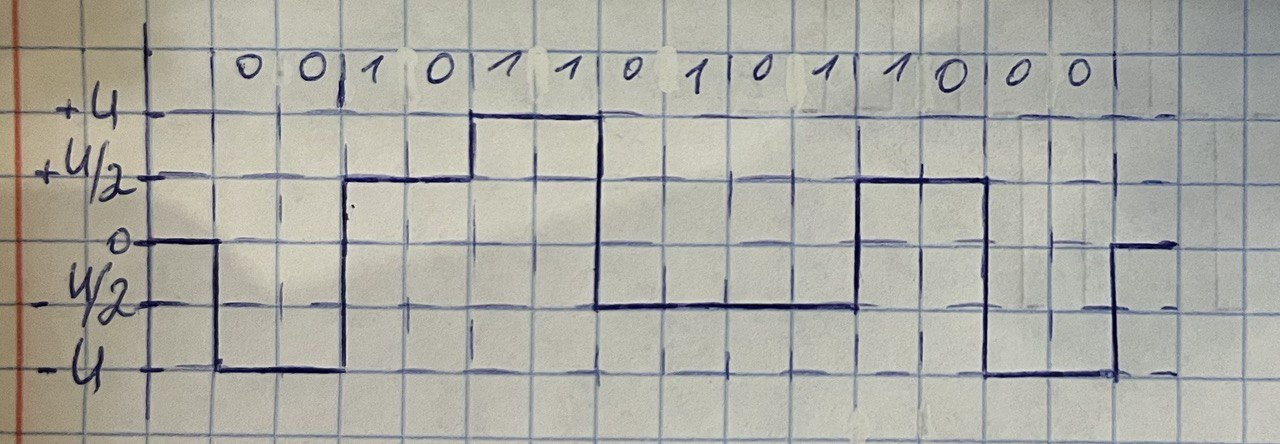 0 0 1 0 1 1 0 1 0 1 1 0 0 0
+U
+U/2
0
-U/2
-U